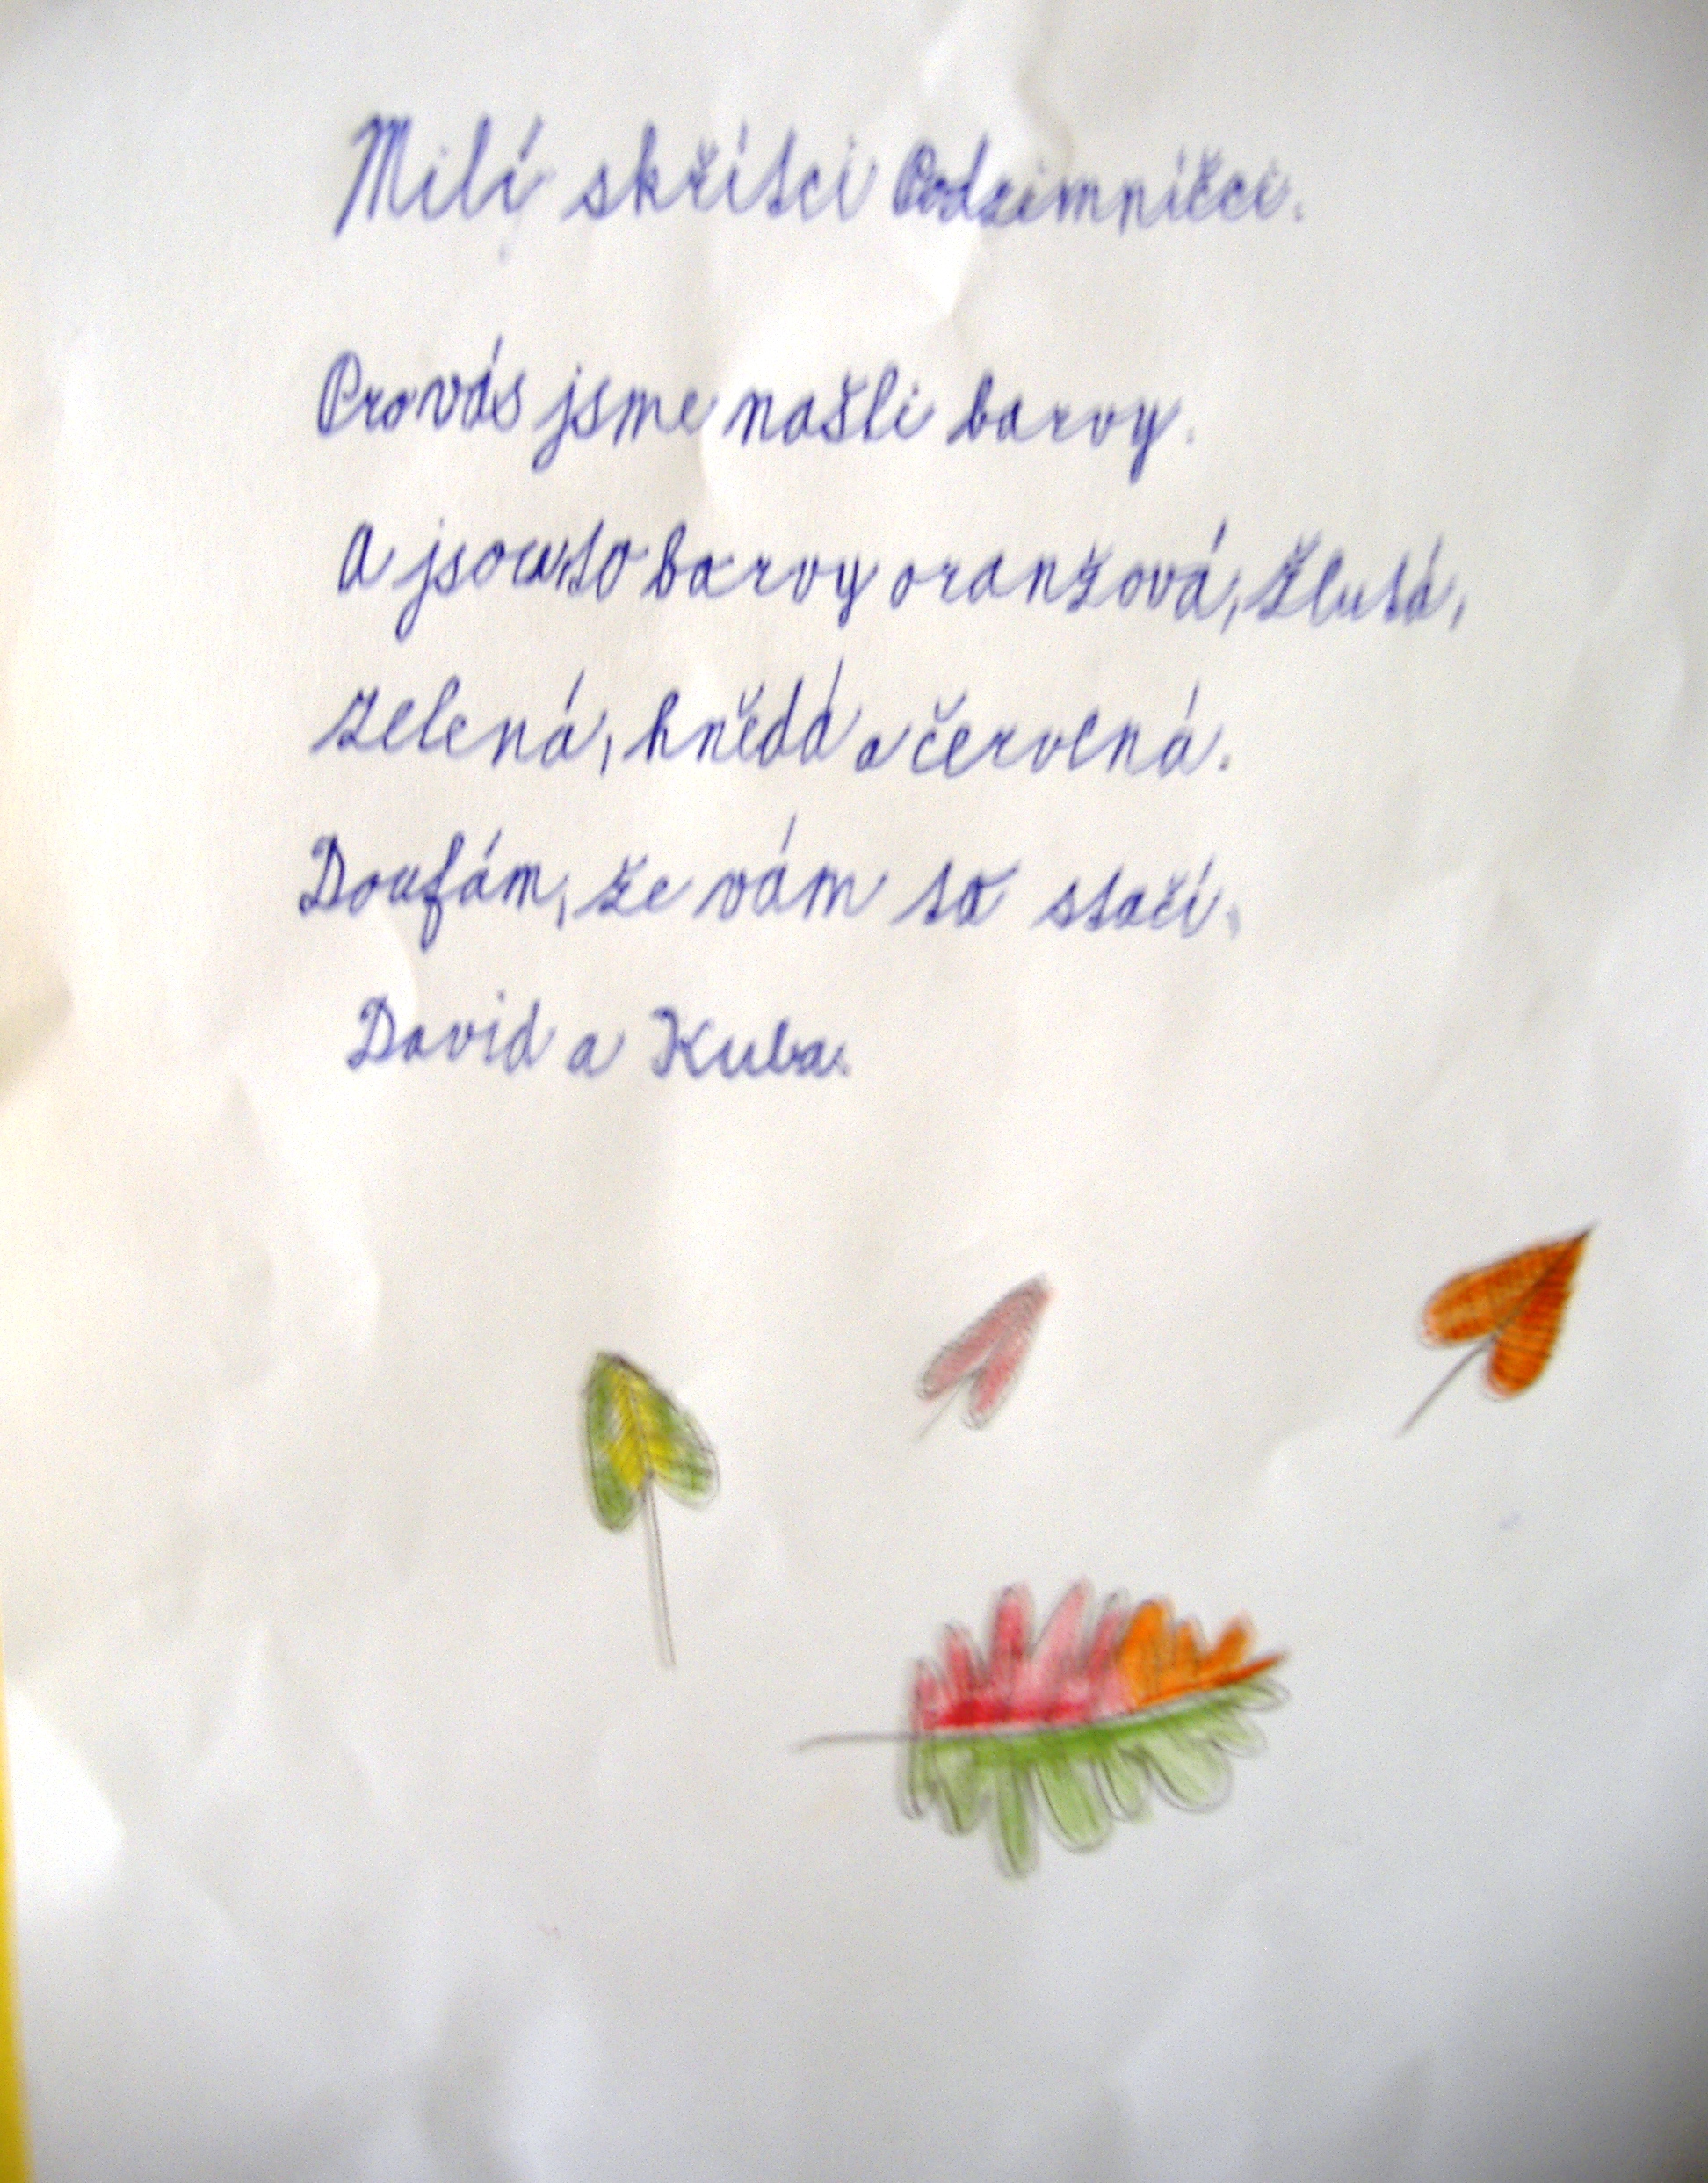 Milí skřítci Podzimníčci.
Pro vás jsme našli barvy.
A jsou to barvy oranžová, žlutá,
zelená, hnědá a červená.
Doufám, že vám to stačí.
David a Kuba.